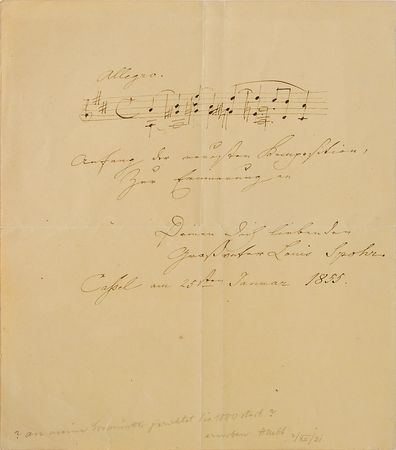 Allegro.
Anfang der neuesten Komposition,
Zur Erinnerung an
Deinen Dich liebenden
Großvater Louis Spohr.
Cassel am 25sten Januar 1855.
? an meine gerichtet die 1880 starb ?
erworben